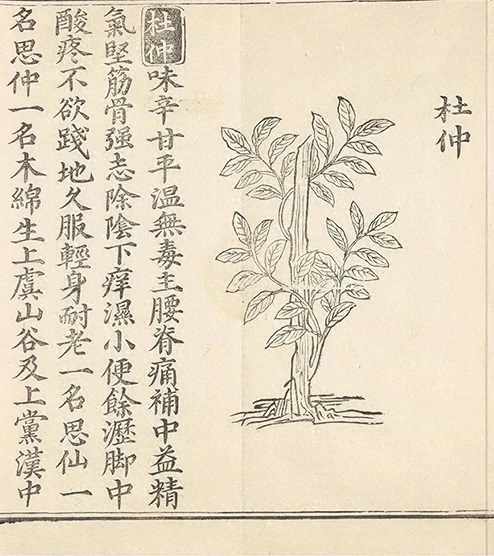 杜仲
杜仲味辛甘平温無毒主腰脊痛補中益精
氣堅筋骨强志除陰下痒濕小便餘瀝脚中
酸疼不欲踐地久服輕身耐老一名思仙一
名思仲一名木綿生上虞山谷及上黨漢中